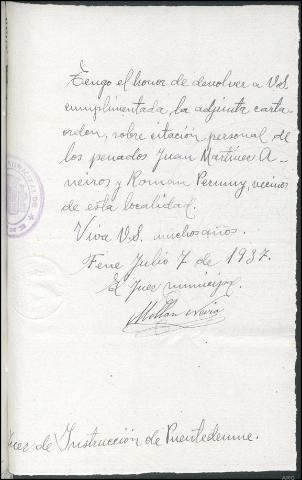 Tengo el honor de devolver a V.S.
cumplimentada, la adjunta carta-
orden, sobre citación personal de
los penados Juan Martínez A-
neiros y Román Permuy, vecinos
de esta localidad.
Viva V.S. muchos años.
Fene Julio 7 de 1937.
El Juez municipal.
Juez de Instrucción de Puentedeume.